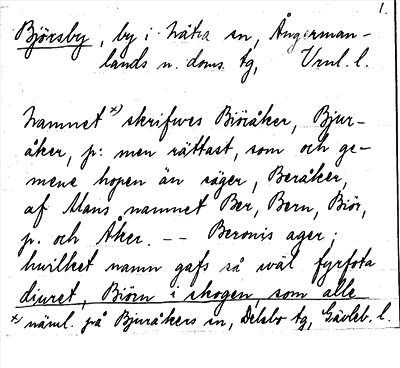 1.
Björsby, by i Nätra sn, Ångerman-
lands n. doms. tg, Vrnl. l.
Namnet x) skrifwes Biöråker, Bjur-
åker, p: men rättast, som och ge-
mene hopen än säger, Beråker,
af Mans namnet Ber, Bern, Biör,
p. och Åker. -- Beronis ager;
hwilket namn gafs så wäl fyrfota
diuret, Biörn i skogen, som alle
x) näml. på Bjuråkers sn, Delsbo tg, Gävleb. l.